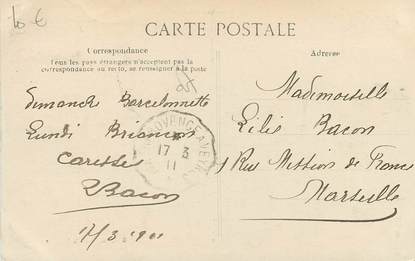 10 €
CARTE POSTALE
Correspondance
Tous les pays étrangers n'acceptent pas la
correspondance au recto, se renseigner à la poste
Adresse
25
Dimanche Barcelonnette
Lundi Briançon
Caresse
Bacon
17/3
17 3
11
Mademoiselle
Lilie Bacon
1 Rue Mission de France
Marseille